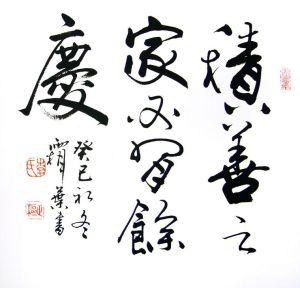 積善之
家必有餘
慶
癸巳初冬
葉書